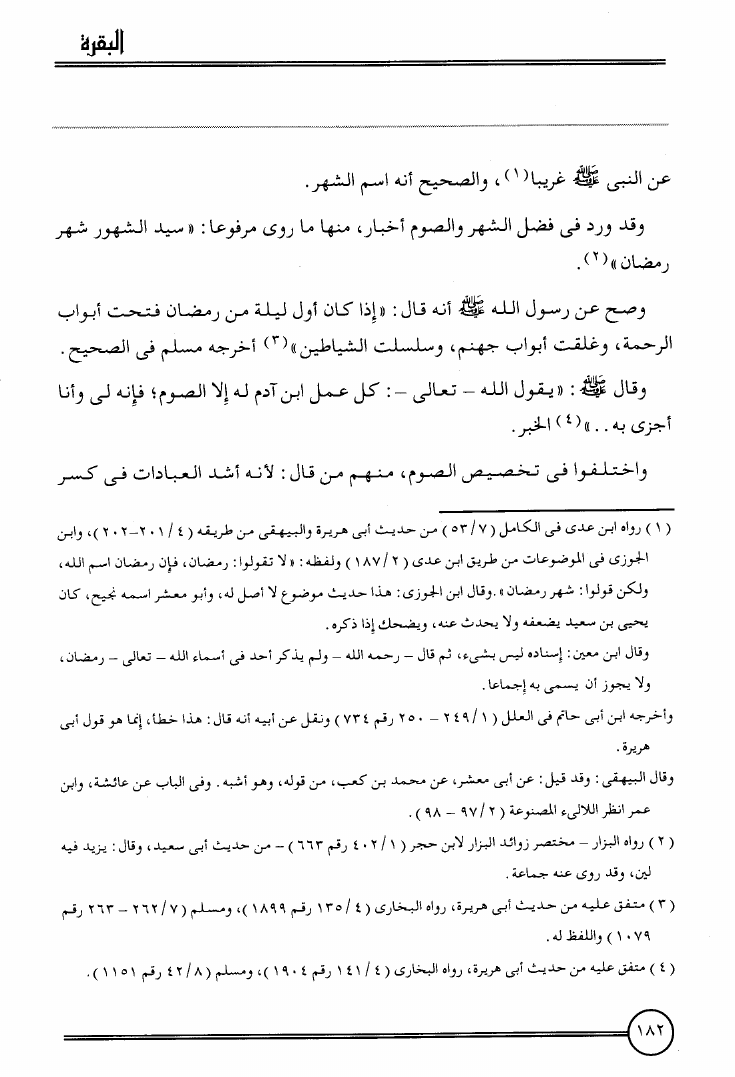 البقرة
عن النبى ﷺ غريبا(١)، والصحيح أنه اسم الشهر.
وقد ورد فى فضل الشهر والصوم أخبار، منها ما روى مرفوعا: «سيد الشهور شهر
رمضان»(٢).
وصح عن رسول الله ﷺ أنه قال: «إذا كان أول ليلة من رمضان فتحت أبواب
الرحمة، وغلقت أبواب جهنم، وسلسلت الشياطين»(٣) أخرجه مسلم فى الصحيح.
وقال ﷺ: «يقول الله – تعالى –: كل عمل ابن آدم له إلا الصوم؛ فإنه لى وأنا
أجزى به..»(٤) الخبر.
واختلفوا فى تخصيص الصوم، منهم من قال: لأنه أشد العبادات فى كسر
(١) رواه ابن عدى فى الكامل (٥٣/٧) من حديث أبى هريرة والبيهقى من طريقه (٢٠١/٤–٢٠٢)، وابن
الجوزى فى الموضوعات من طريق ابن عدى (١٨٧/٢) ولفظه: «لا تقولوا: رمضان، فإن رمضان اسم الله،
ولكن قولوا: شهر رمضان». وقال ابن الجوزى: هذا حديث موضوع لا أصل له، وأبو معشر اسمه نجيح، كان
يحيى بن سعيد يضعفه ولا يحدث عنه، ويضحك إذا ذكره.
وقال ابن معين: إسناده ليس بشىء، ثم قال – رحمه الله – ولم يذكر أحد فى أسماء الله – تعالى – رمضان،
ولا يجوز أن يسمى به إجماعا.
وأخرجه ابن أبى حاتم فى العلل (٢٤٩/١ – ٢٥٠ رقم ٧٣٤) ونقل عن أبيه أنه قال: هذا خطأ، إنما هو قول أبى
هريرة.
وقال البيهقى: وقد قيل: عن أبى معشر، عن محمد بن كعب، من قوله، وهو أشبه. وفى الباب عن عائشة، وابن
عمر انظر اللالىء المصنوعة (٩٧/٢ – ٩٨).
(٢) رواه البزار – مختصر زوائد البزار لابن حجر (٤٠٢/١ رقم ٦٦٣) – من حديث أبى سعيد، وقال: يزيد فيه
لين، وقد روى عنه جماعة.
(٣) متفق عليه من حديث أبى هريرة، رواه البخارى (١٣٥/٤ رقم ١٨٩٩)، ومسلم (٢٦٢/٧ – ٢٦٣ رقم
١٠٧٩) واللفظ له.
(٤) متفق عليه من حديث أبى هريرة، رواه البخارى (١٤١/٤ رقم ١٩٠٤)، ومسلم (٤٢/٨ رقم ١١٥١).
١٨٢